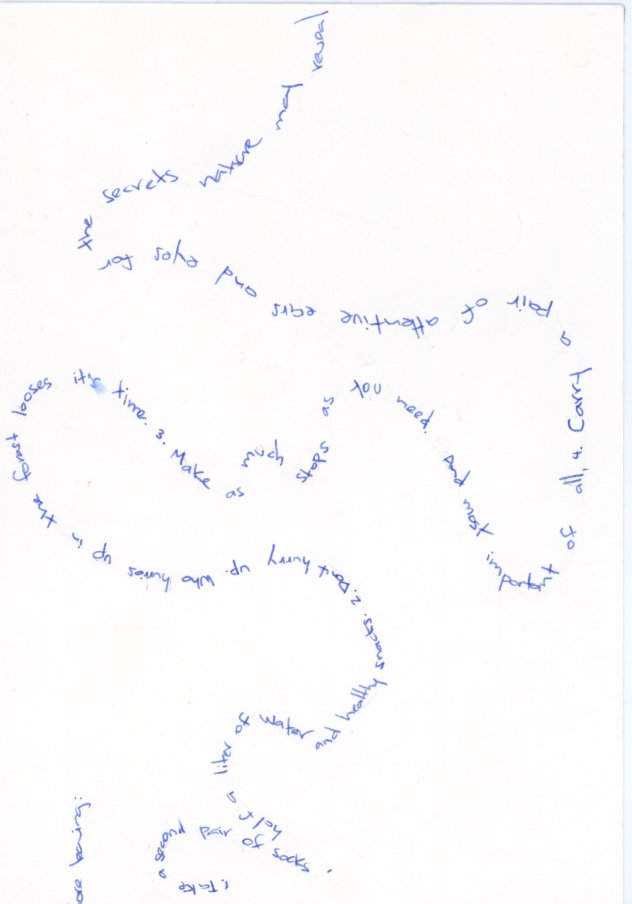 ore leaving:
1. Take a second pair of socks, half a liter of water and healthy snacks. 2. Don't hurry up. Who hurries up in the forest looses it's time. 3. Make as much stops as you need. And most important of all, 4. Carry a pair of attentive ears and eyes for the secrets nature may reveal